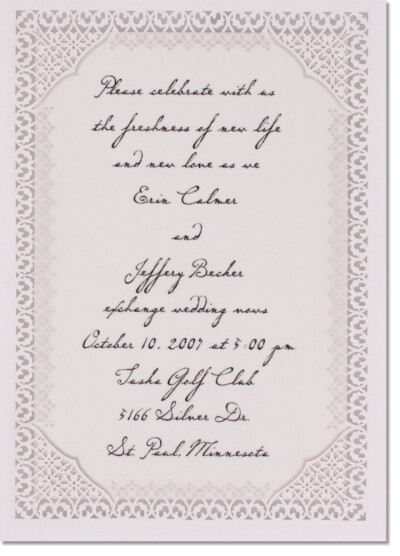 Please celebrate with us
the freshness of new life
and new love as we
Erin Calmer
and
Jeffery Becher
exchange wedding vows
October 10, 2007 at 5:00 pm
Tasha Golf Club
5166 Silver Dr.
St Paul, Minnesota